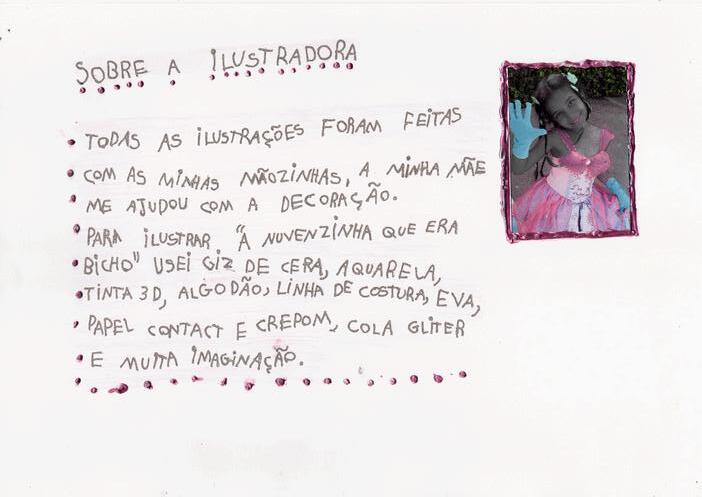 SOBRE A ILUSTRADORA
TODAS AS ILUSTRAÇÕES FORAM FEITAS
COM AS MINHAS MÃOZINHAS, A MINHA MÃE
ME AJUDOU COM A DECORAÇÃO.
PARA ILUSTRAR "A NUVENZINHA QUE ERA
BICHO" USEI GIZ DE CERA, AQUARELA,
TINTA 3D, ALGODÃO, LINHA DE COSTURA, EVA,
PAPEL CONTACT E CREPOM, COLA GLITER
E MUITA IMAGINAÇÃO.